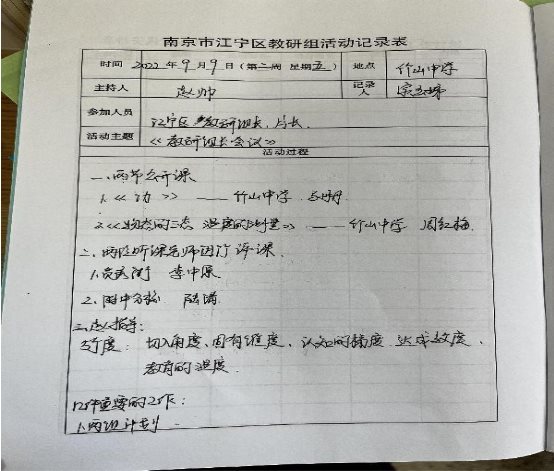 南京市江宁区教研组活动记录表
时间 2022年9月9日（第二周 星期五） 地点 竹山中学
主持人 记录人
参加人员 江宁区 教研组长、
活动主题 《教研组长会议》
活动过程
一、两节公开课
1.《功》 —— 竹山中学
2.《物态的三态 温度的测量》 —— 竹山中学 周红梅
二、两位听课老师进行评课
1. 李中原
2.附中
三、指导：
5个度：切入角度、固有维度、认知的梯度 达成效度、
教育的温度.
12件重要的工作：
1.两组计划